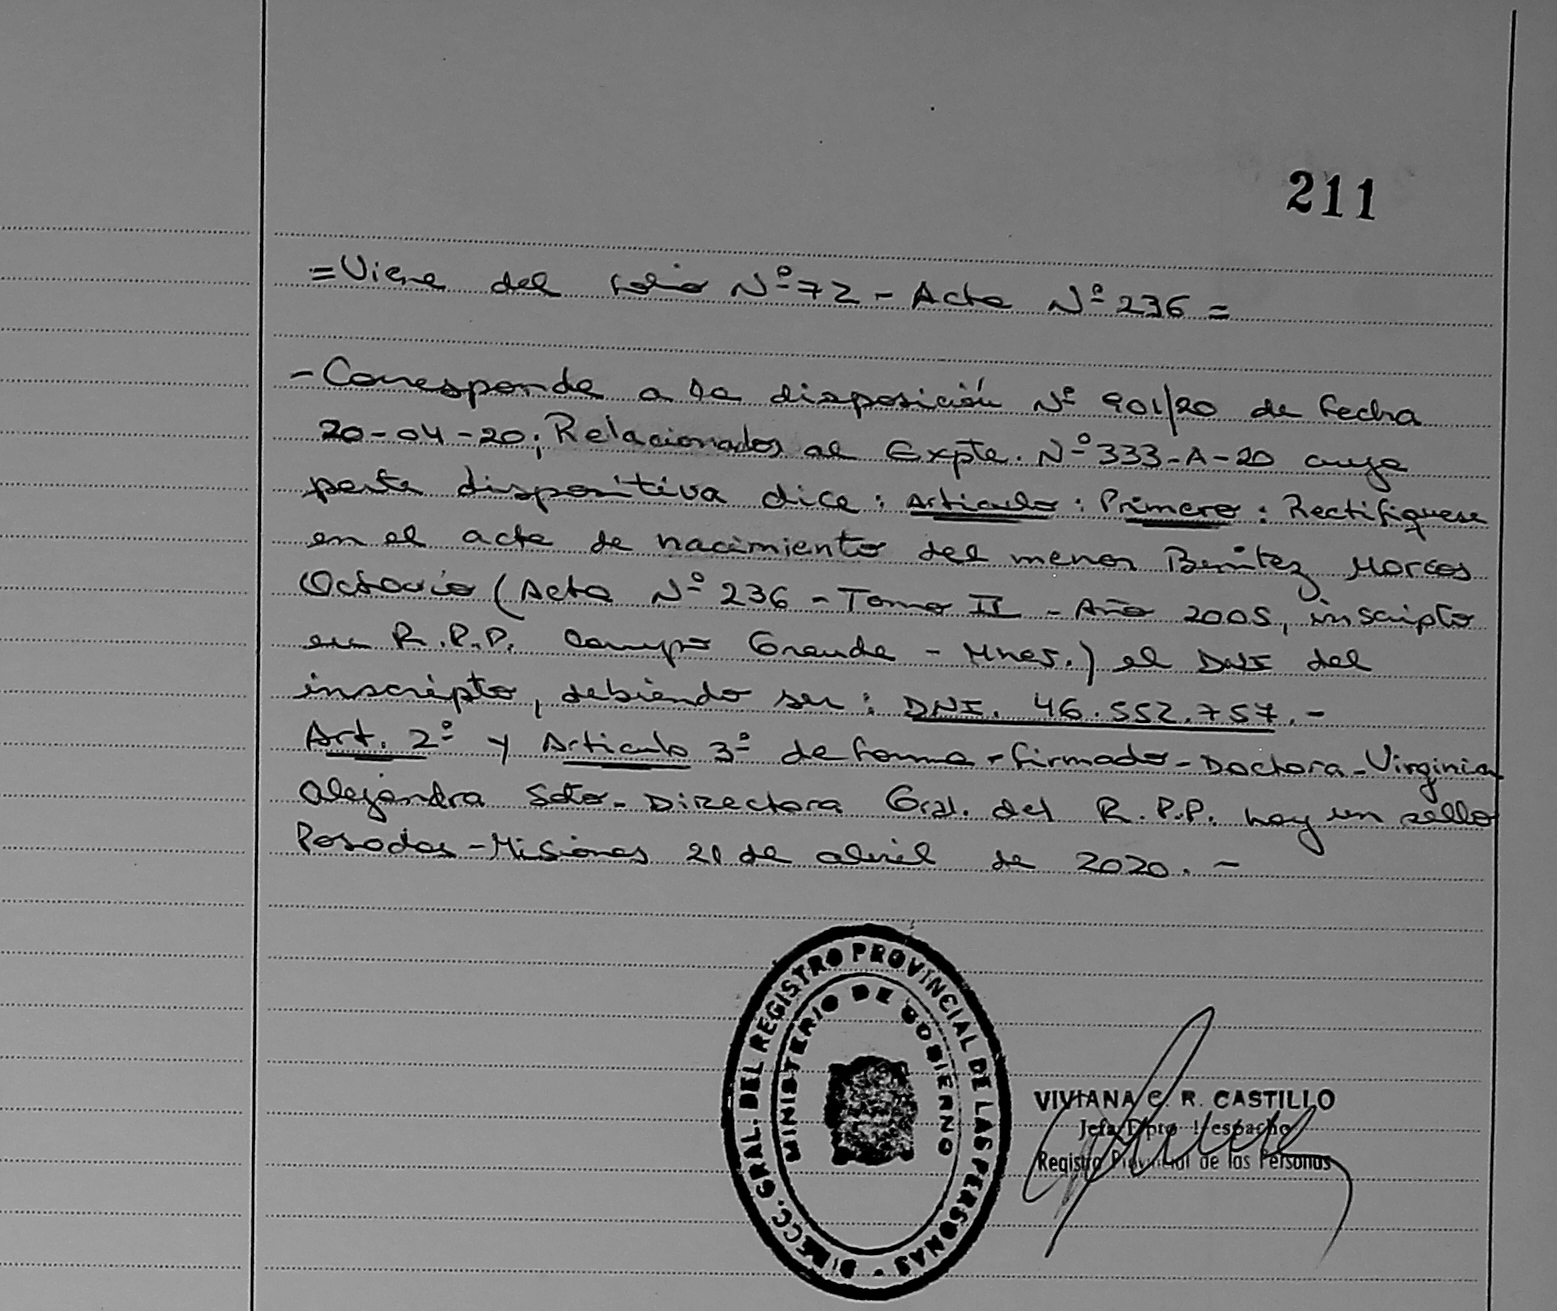 211
=Viene del folio Nº 72 - Acta Nº 236 =
- Corresponde a la disposición Nº 901/20 de fecha
20-04-20; Relacionados al Expte. Nº 333-A-20 cuya
parte dispositiva dice: Articulo: Primero: Rectifiquese
en el acta de nacimiento del menor Benitez Marcos
Octavio (Acta Nº 236 - Tomo II - Año 2005, inscripto
en R.P.P. Campo Grande - Mnes.) el DNI del
inscripto, debiendo ser: DNI. 46.552.757.-
Art. 2º y Articulo 3º de forma - firmado - Doctora - Virginia
Alejandra Soto - Directora Gral. del R.P.P. hay un sello
Posadas - Misiones 21 de abril de 2020. -
DIRECC. GRAL. DEL REGISTRO PROVINCIAL DE LAS PERSONAS
MINISTERIO DE GOBIERNO
VIVIANA C. R. CASTILLO
Jefa Dpto Despacho
Registro Provincial de las Personas